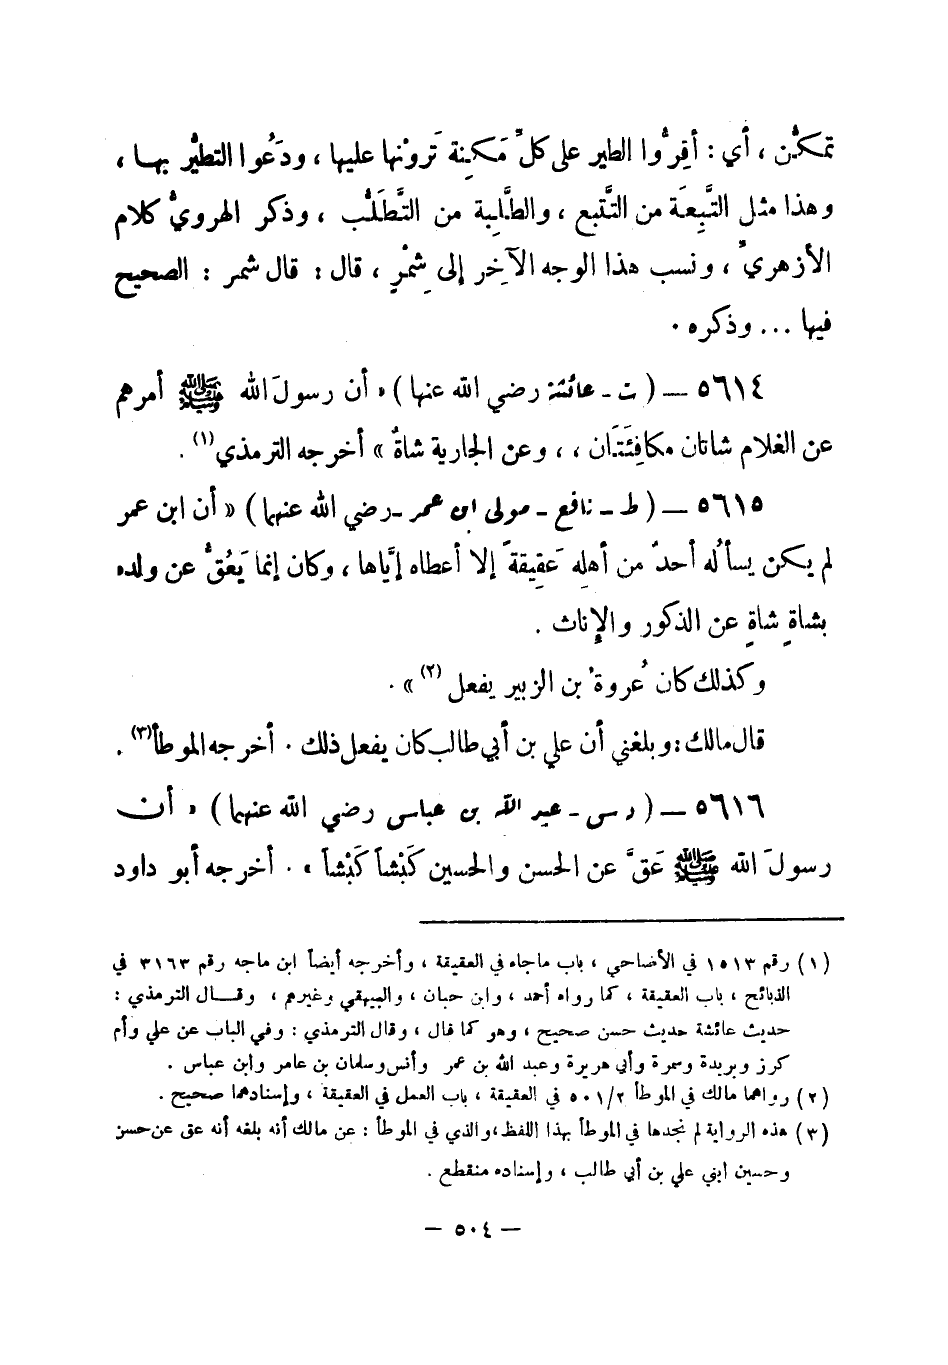 تمكُّن ، أي : أقِرُّوا الطير على كلِّ مَكِنة تَرونْها عليها ، ودَعُوا التطيُّر بها ،
وهذا مثل التَّبِعَة من التتبع ، والطَّلِبة من التَّطَلُّب ، وذكر الهرويُّ كلام
الأزهريِّ ، ونسب هذا الوجه الآخِر إلى شِمْرٍ ، قال : قال شمر : الصحيح
فيها ... وذكره .
٥٦١٤ – ( ت - عائشة رضي الله عنها ) « أن رسولَ الله ﷺ أمرهم
عن الغلام شاتان مكافِئَتَان ، ، وعن الجارية شاةٌ » أخرجه الترمذي(١) .
٥٦١٥ – ( ط - نافع - مولى ابن عمر - رضي الله عنهما ) « أن ابن عمر
لم يكن يسألُه أحدٌ من أهلِه عَقِيقةً إلا أعطاه إيَّاها ، وكان إنما يَعُقُّ عن ولده
بشاةٍ شاةٍ عن الذكور والإناث .
وكذلك كان عُروةُ بن الزبير يفعل (٢) » .
قال مالك : وبلغني أن علي بن أبي طالب كان يفعل ذلك . أخرجه الموطأ(٣) .
٥٦١٦ – ( د س - عبد الله بن عباس رضي الله عنهما ) « أن
رسولَ الله ﷺ عَقَّ عن الحسن والحسين كَبْشاً كَبْشاً » . أخرجه أبو داود
(١) رقم ١٥١٣ في الأضاحي ، باب ماجاء في العقيقة ، وأخرجه أيضاً ابن ماجه رقم ٣١٦٣ في
الذبائح ، باب العقيقة ، كما رواه أحمد ، وابن حبان ، والبيهقي وغيرهم ، وقال الترمذي :
حديث عائشة حديث حسن صحيح ، وهو كما قال ، وقال الترمذي : وفي الباب عن علي وأم
كرز وبريدة وسمرة وأبي هريرة وعبد الله بن عمر وأنس وسلمان بن عامر وابن عباس .
(٢) رواهما مالك في الموطأ ٥٠١/٢ في العقيقة ، باب العمل في العقيقة ، وإسنادهما صحيح .
(٣) هذه الرواية لم نجدها في الموطأ بهذا اللفظ ، والذي في الموطأ : عن مالك أنه بلغه أنه عق عن حسن
وحسين ابني علي بن أبي طالب ، وإسناده منقطع .
– ٥٠٤ –